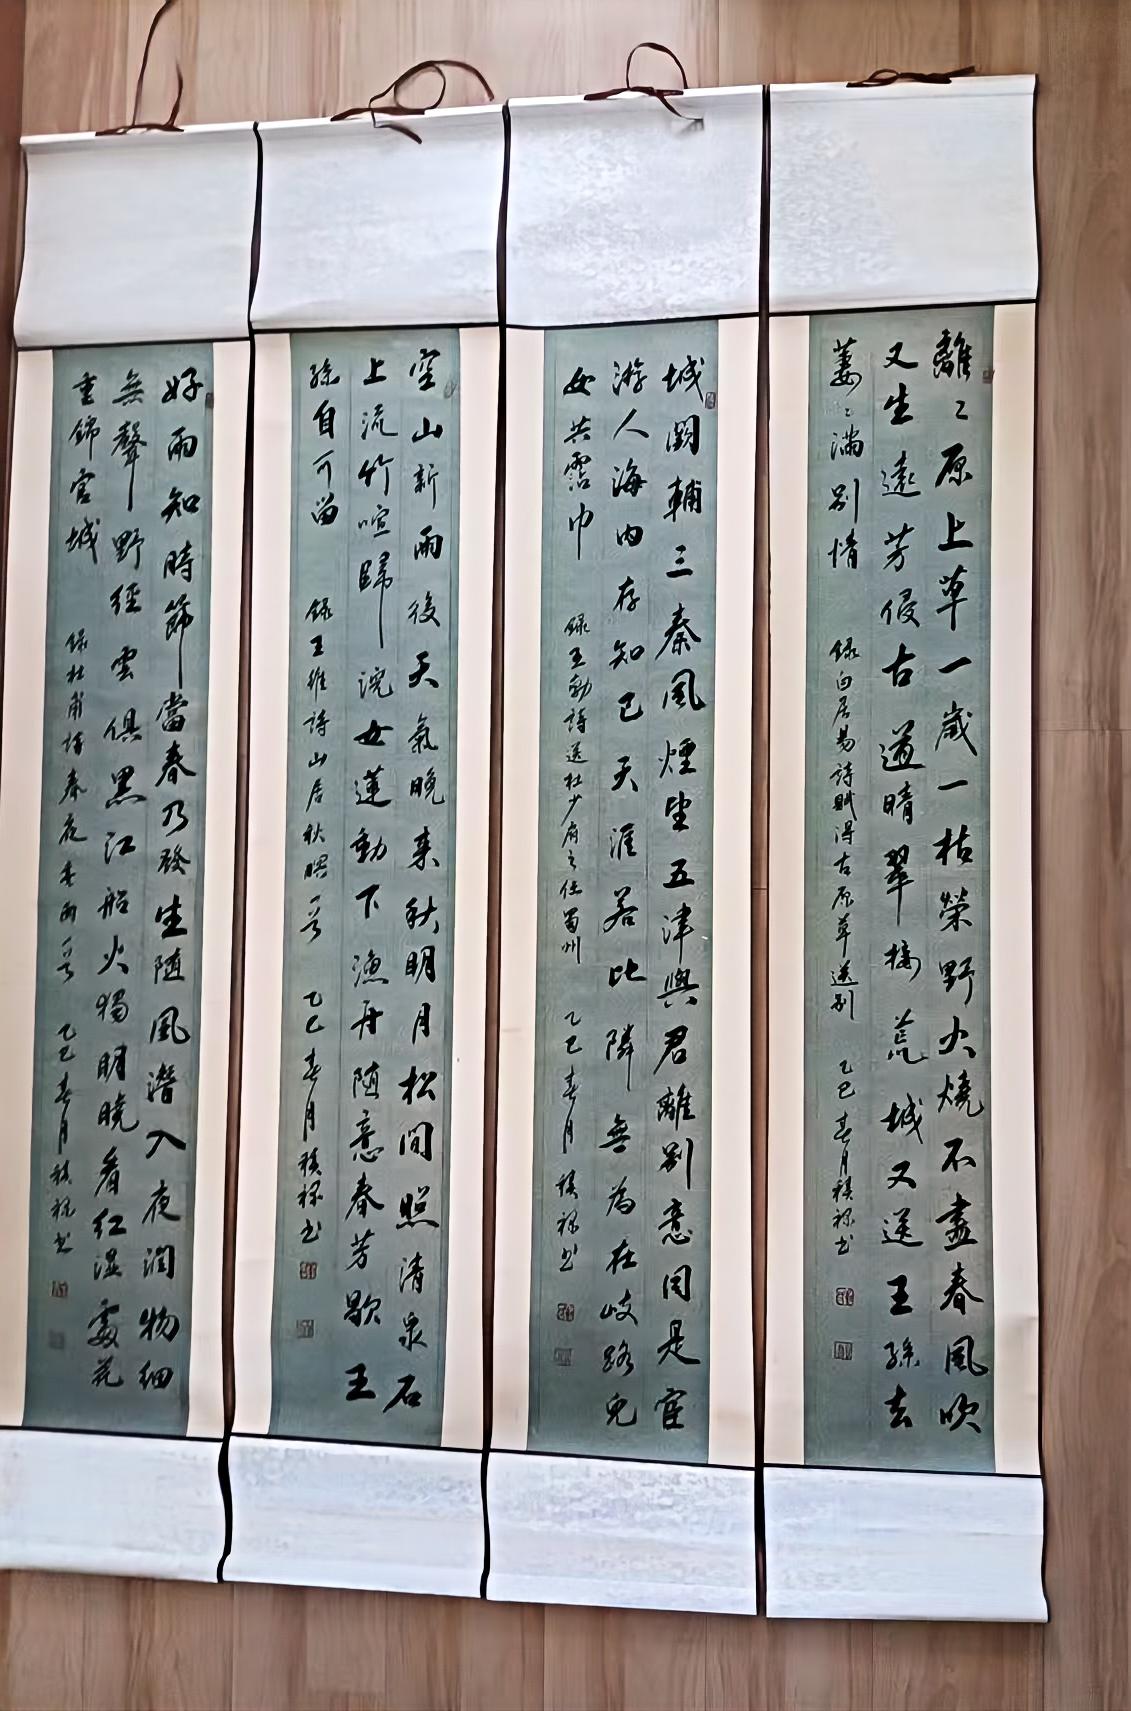 離〻原上草一歲一枯榮野火燒不盡春風吹
又生遠芳侵古道晴翠接荒城又送王孫去
萋〻滿別情 錄白居易詩賦得古原草送別 乙巳春月 书
城闕輔三秦風煙望五津與君離別意同是宦
游人海內存知己天涯若比隣無為在岐路兒
女共霑巾 錄王勃詩送杜少府之任蜀州 乙巳春月 书
空山新雨後天氣晚来秋明月松间照清泉石
上流竹喧歸浣女蓮動下漁舟随意春芳歇王
孫自可留 錄王維詩山居秋暝一首 乙巳春月 书
好雨知時節當春乃發生随風潛入夜潤物細
無聲野徑雲俱黑江船火獨明曉看紅濕處花
重錦官城 錄杜甫詩春夜喜雨一首 乙巳春月 书